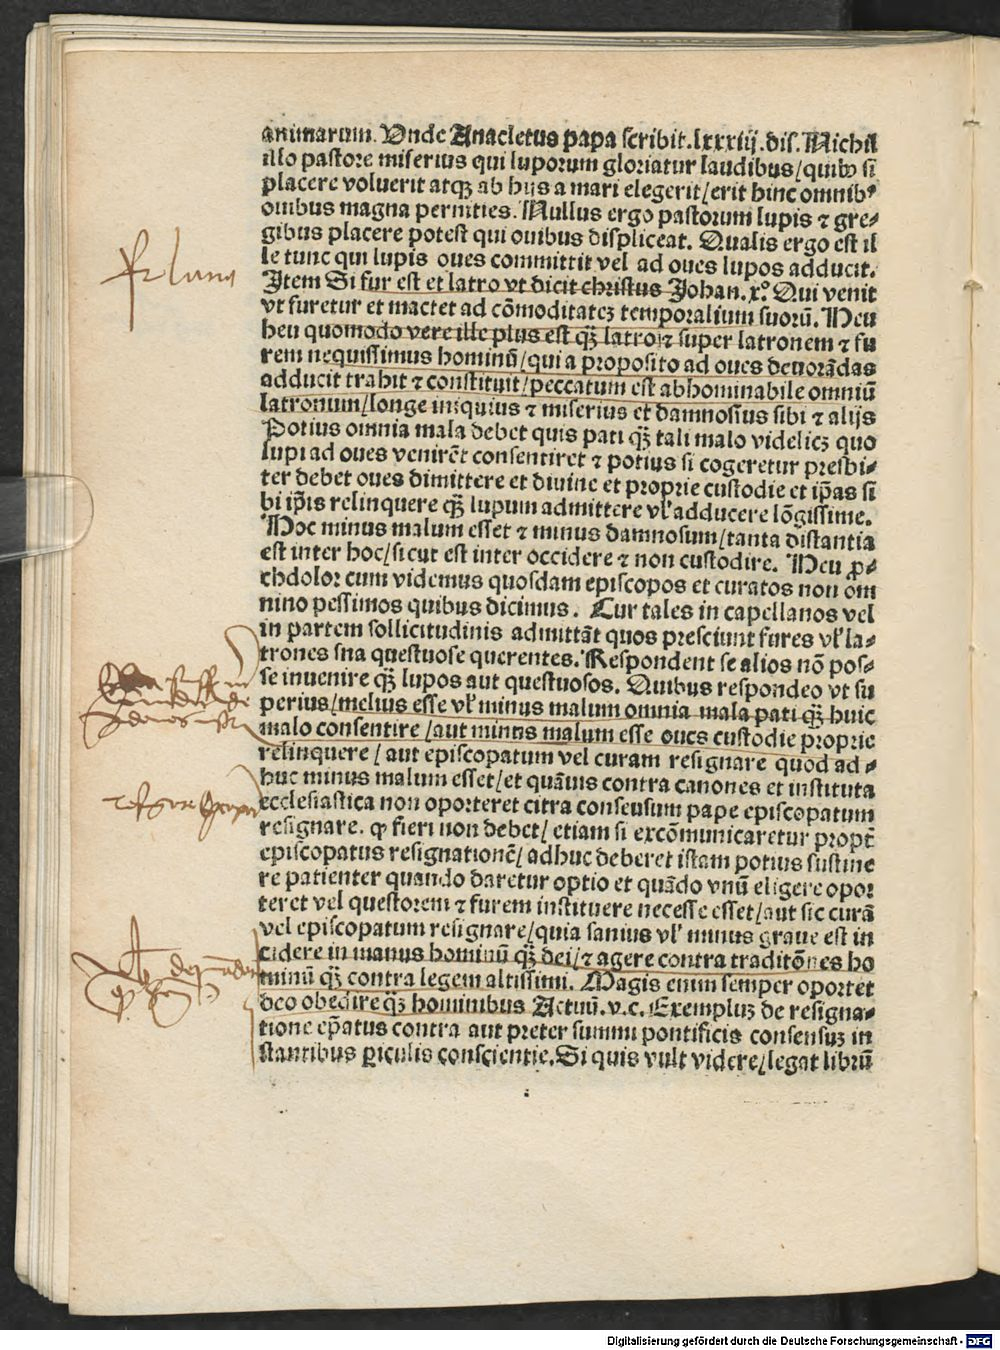 animarum. Unde Anacletus papa scribit. lxxxiij. dis. Nichil
illo pastore miserius qui luporum gloriatur laudibus/quibꝰ si
placere voluerit atqꝫ ab hijs amari elegerit/erit hinc omnibꝰ
ouibus magna pernities. Nullus ergo pastorum lupis ⁊ gre⸗
gibus placere potest qui ouibus displiceat. Qualis ergo est il
le tunc qui lupis oues committit vel ad oues lupos adducit.
Item Si fur est et latro vt dicit christus Johan. x.° Qui venit
vt furetur et mactet ad cōmoditatēꝫ temporalium suorū. Heu
heu quomodo vere ille plus est qꝫ̄ latro/⁊ super latronem ⁊ fu
rem nequissimus hominū/qui a proposito ad oues deuorādas
adducit trahit ⁊ constituit/peccatum est abhominabile omniū
latronum/longe iniquius ⁊ miserius et damnosius sibi ⁊ alijs
Potius omnia mala debet quis pati qꝫ̄ tali malo videlicꝫ quo
lupi ad oues venirēt consentiret ⁊ potius si cogeretur presbi⸗
ter debet oues dimittere et diuine et proprie custodie et ip̄as si
bi ip̄is relinquere qꝫ̄ lupum admittere vl̓ adducere lōgissime.
Hoc minus malum esset ⁊ minus damnosum/tanta distantia
est inter hoc/sicut est inter occidere ⁊ non custodire. Heu ꝓ⸗
chdolor cum videmus quosdam episcopos et curatos non om
nino pessimos quibus dicimus. Cur tales in capellanos vel
in partem sollicitudinis admittāt quos presciunt fures vl̓ la⸗
trones sua questuose querentes. Respondent se alios nō pos⸗
se inuenire qꝫ̄ lupos aut questuosos. Quibus respondeo vt su
perius/melius esse vl̓ minus malum omnia mala pati qꝫ̄ huic
malo consentire/aut minus malum esse oues custodie proprie
relinquere/aut episcopatum vel curam resignare quod ad⸗
huc minus malum esset/et quāuis contra canones et instituta
ecclesiastica non oporteret citra consensum pape episcopatum
resignare. ꝙ fieri non debet/etiam si excōmunicaretur propt̄
episcopatus resignationē/adhuc deberet istam potius sustine
re patienter quando daretur optio et quādo vnū eligere opor
teret vel questorem ⁊ furem instituere necesse esset/aut sic curā
vel episcopatum resignare/quia sanius vl̓ minus graue est in
cidere in manus hominū qꝫ̄ dei/⁊ agere contra traditōnes ho
minū qꝫ̄ contra legem altissimi. Magis enim semper oportet
deo obedire qꝫ̄ hominibus Actuū. v. c. Exempluꝫ de resigna⸗
tione ep̄atus contra aut preter summi pontificis consensuꝫ in
stantibus ꝑiculis conscientie. Si quis vult videre/legat librū
Digitalisierung gefördert durch die Deutsche Forschungsgemeinschaft - DFG